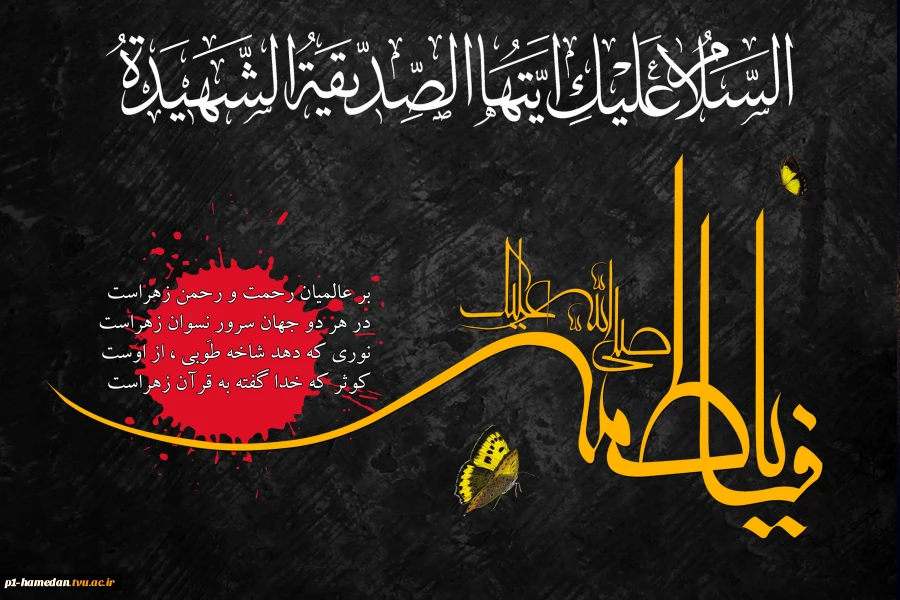 السَّلامُ عَلَيْكِ اَيَّتُهَا الصِّدّيقَةُ الشَّهيدَةُ
فاطمه
صلی الله علیک
بر عالمیان رحمت و رحمن زهراست
در هر دو جهان سرور نسوان زهراست
نوری که دهد شاخه طَوبی ، از اوست
کوثر که خدا گفته به قرآن زهراست
p1-hamedan.tvu.ac.ir